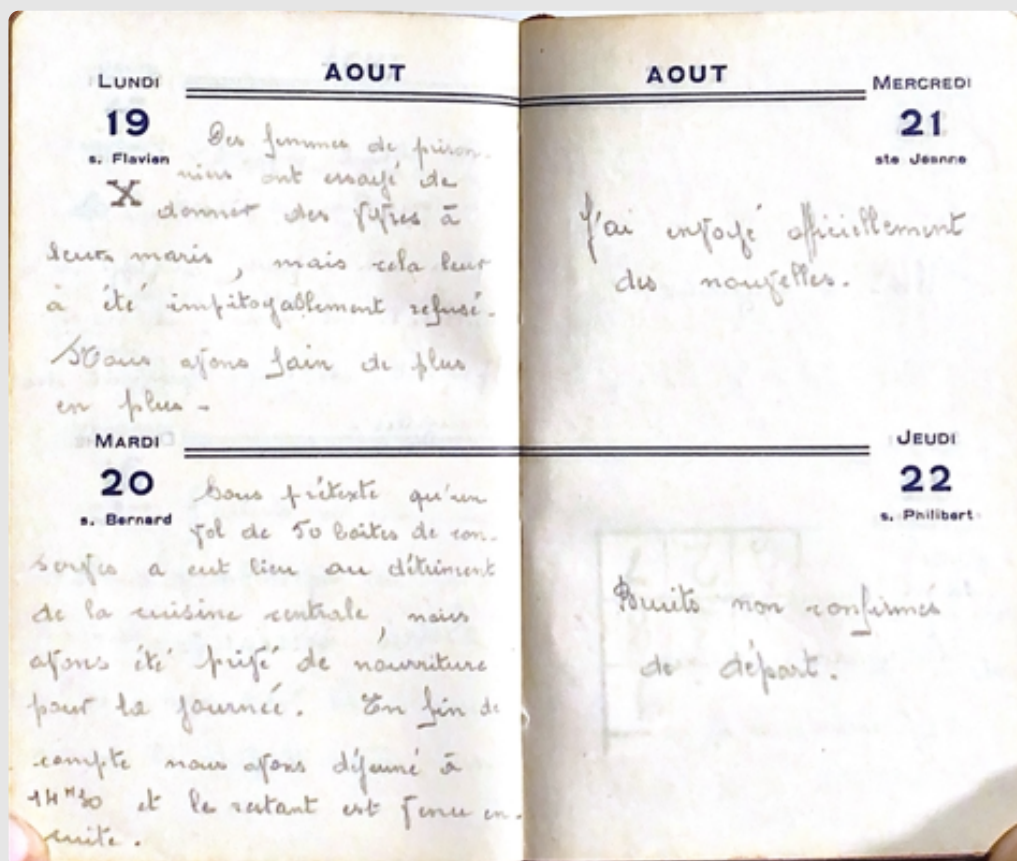 AOUT
LUNDI
19
s. Flavien
X
Des femmes de prison-
niers ont essayé de
donner des vivres à
leurs maris, mais cela leur
à été impitoyablement refusé.
Nous avons faim de plus
en plus -
MARDI
20
s. Bernard
Sous prétexte qu'un
vol de 50 boites de con-
serves a eut lieu au détriment
de la cuisine centrale, nous
avons été privé de nourriture
pour la journée. En fin de
compte nous avons déjeuné à
14H30 et le restant est venu en-
suite.
AOUT
MERCREDI
21
ste Jeanne
J'ai envoyé officiellement
des nouvelles.
JEUDI
22
s. Philibert
Bruits non confirmés
de départ.